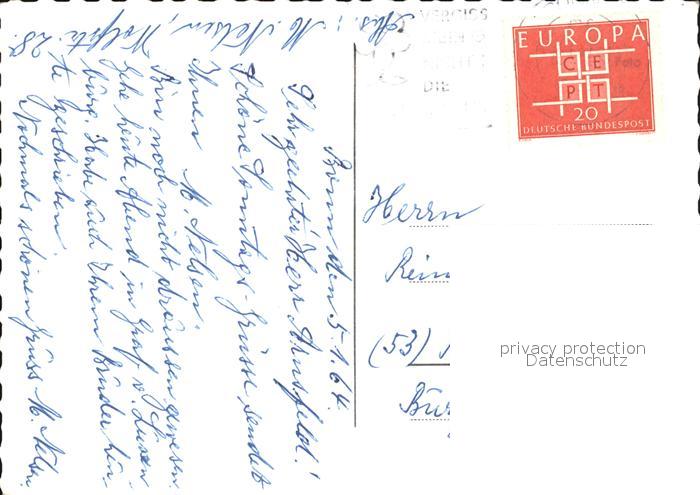 Abs.: M. Nelsen, Wolfstr. 28.
Bonn den 5.1.64.
Sehrgeehrter Herr Arnsfeld!
Schöne Sonntags-Grüsse sendet
Ihnen M. Nelsen.
Bin noch nicht draussen gewesen.
Gehe heute Abend in Graf v. Luxem-
burg. Habe auch Ihrem Bruder
geschrieben.
Nochmals schönen Gruss M. Nelsen.
VERGISS
DIE
EUROPA
CE
PT
20
DEUTSCHE BUNDESPOST
Herrn
Rein
(53)
privacy protection
Datenschutz